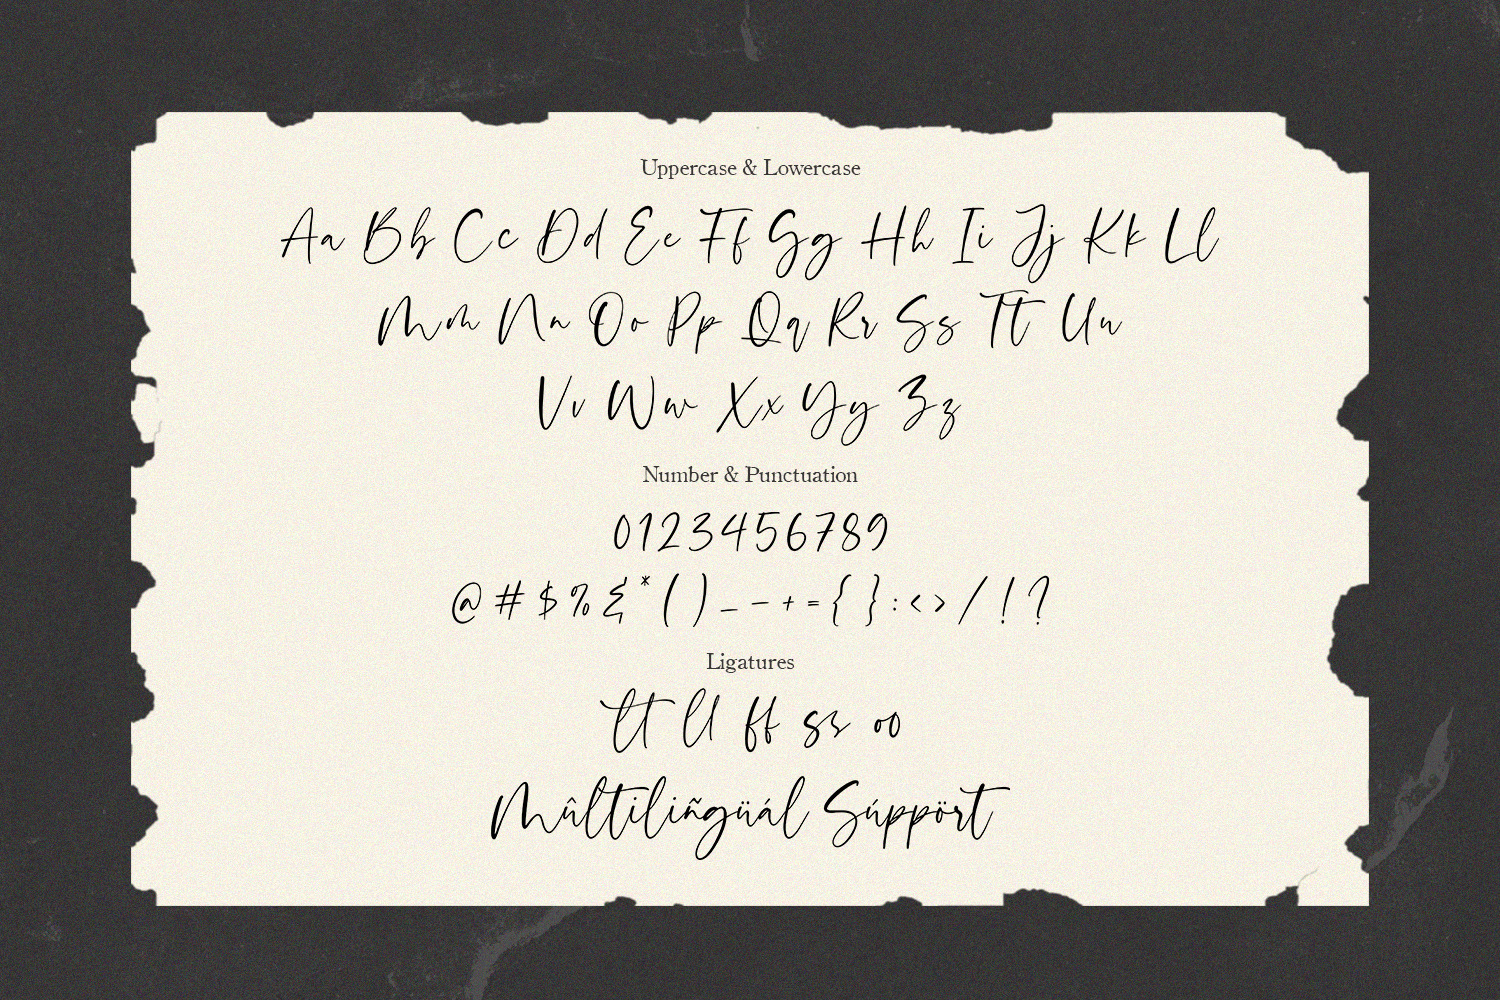 Uppercase & Lowercase
Aa Bb Cc Dd Ee Ff Gg Hh Ii Jj Kk Ll
Mm Nn Oo Pp Qq Rr Ss Tt Uu
Vv Ww Xx Yy Zz
Number & Punctuation
0123456789
@ # $ % & * ( ) _ – + = { } : < > / ! ?
Ligatures
tt ll ff ss oo
Mûltiliñgüál Súppört